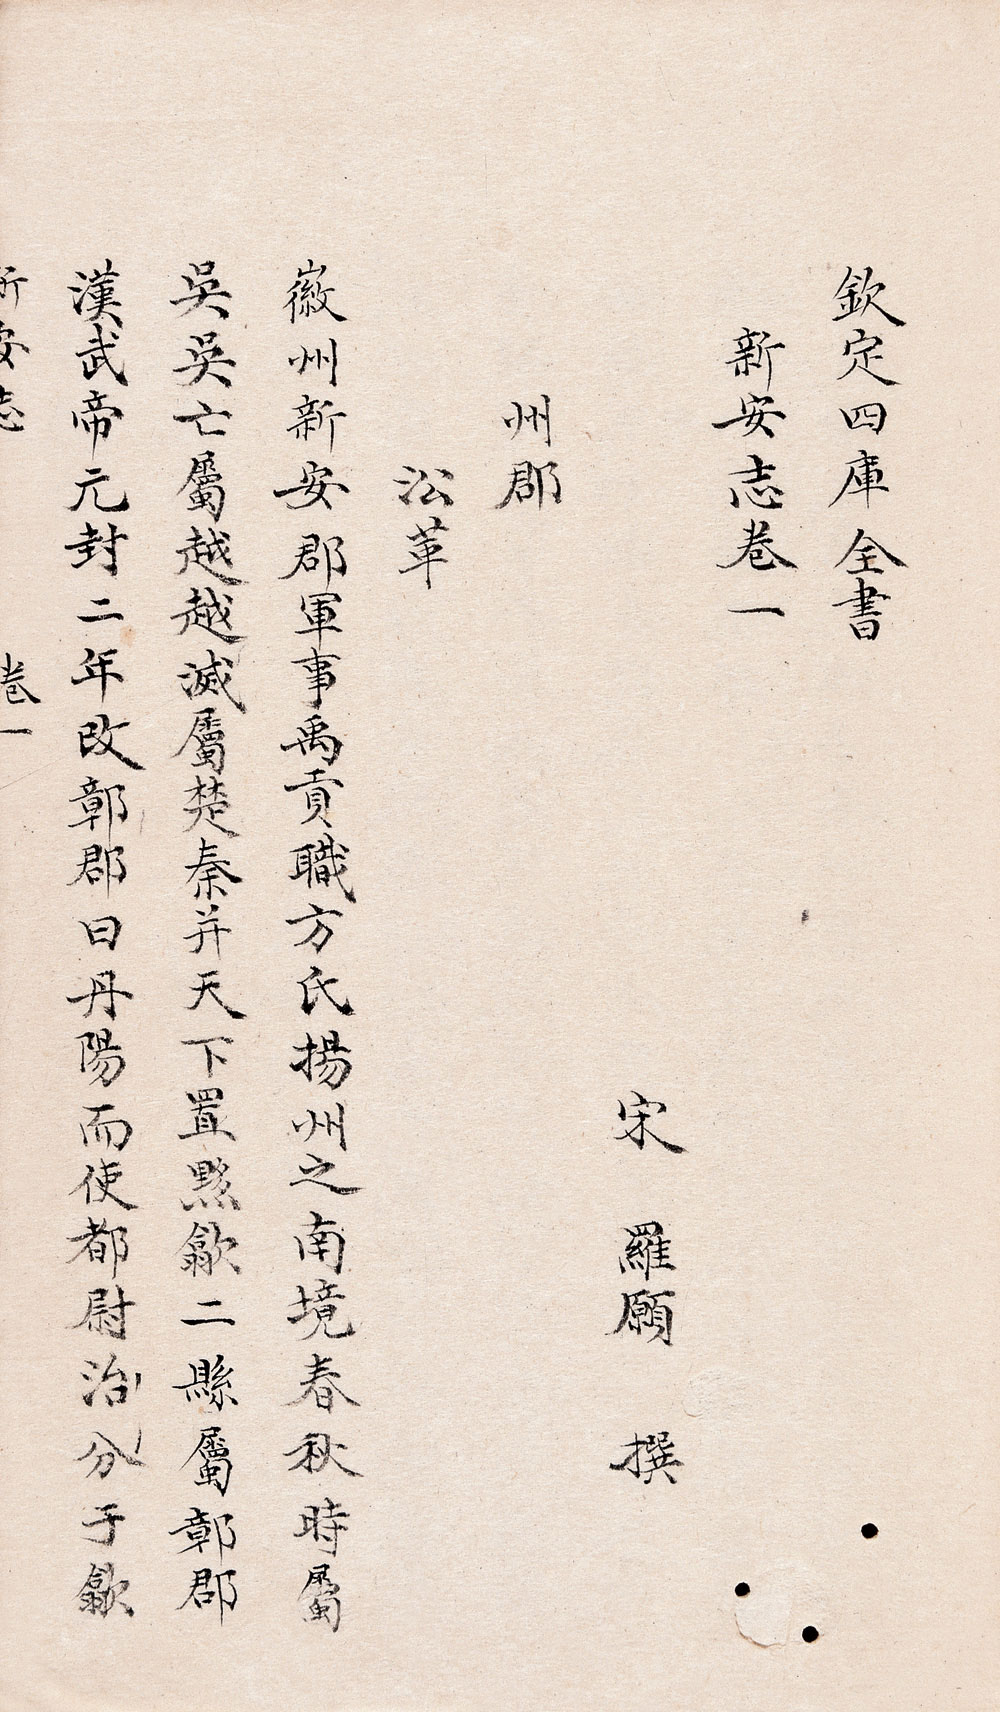 欽定四庫全書
新安志卷一
宋 羅願 撰
州郡
㳂革
徽州新安郡軍事禹貢職方氏揚州之南境春秋時屬
吳吳亡屬越越滅屬楚秦并天下置黟歙二縣屬鄣郡
漢武帝元封二年改鄣郡曰丹陽而使都尉治分于歙
新安志 卷一